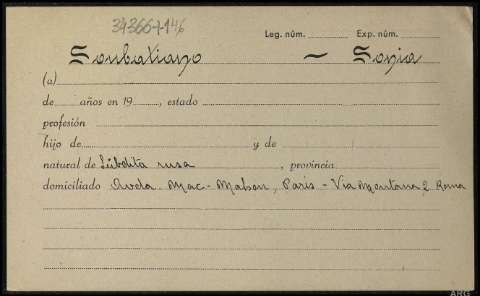 Leg. núm. Exp. núm.
Soubatiano ~ Sonia
(a)
de años en 19 , estado
profesión
hijo de y de
natural de Súbdita rusa , provincia
domiciliado Avda. Mac-Mahon, París - Via Mentana 2 Roma
ARG